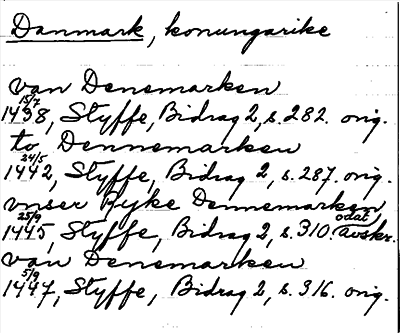 Danmark, konungarike
van Denemarken
15/7
1438, Styffe, Bidrag 2, s. 282. orig.
to Dennemarken
24/5
1442, Styffe, Bidrag 2, s. 287. orig.
vnser Ryke Dennemarken
25/9 odat.
1445, Styffe, Bidrag 2, s. 310. Avskr.
van Denemarken
5/9
1447, Styffe, Bidrag 2, s. 316. orig.